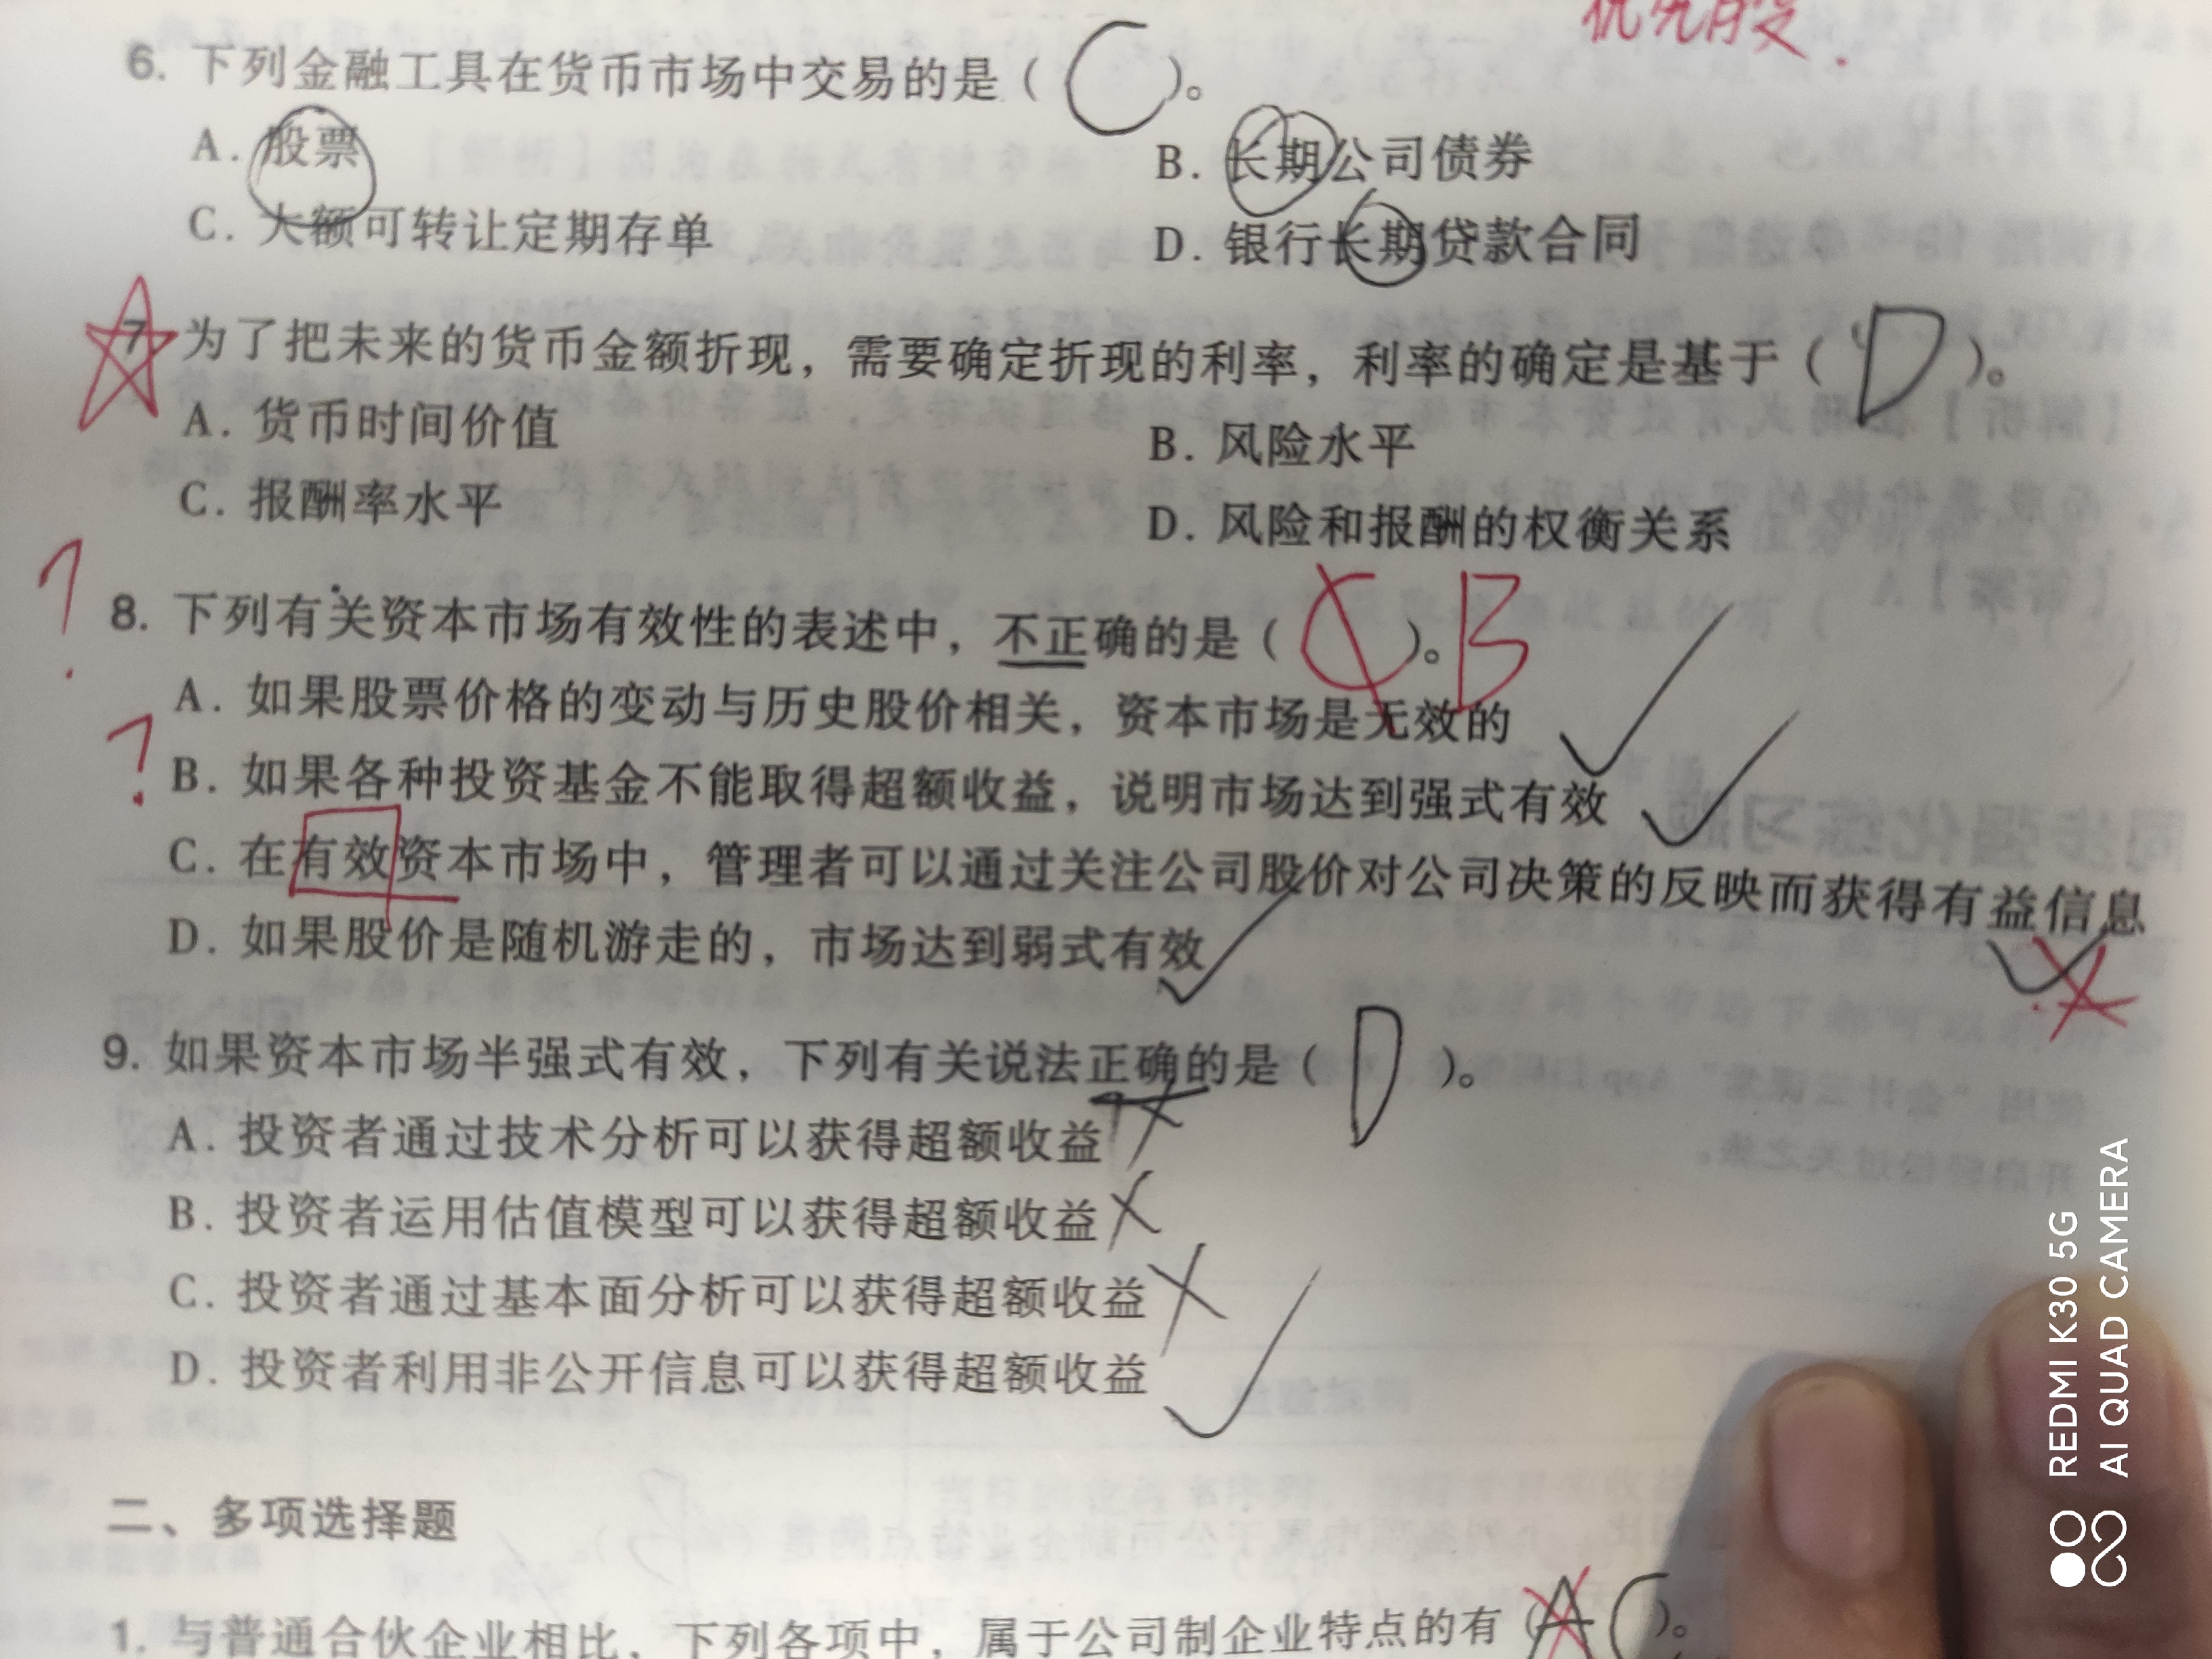 优先股.
6. 下列金融工具在货币市场中交易的是（ C ）。
A. 股票 B. 长期公司债券
C. 大额可转让定期存单 D. 银行长期贷款合同
7 为了把未来的货币金额折现，需要确定折现的利率，利率的确定是基于（ D ）。
A. 货币时间价值 B. 风险水平
C. 报酬率水平 D. 风险和报酬的权衡关系
?
8. 下列有关资本市场有效性的表述中，不正确的是（ C ）。B
A. 如果股票价格的变动与历史股价相关，资本市场是无效的
? B. 如果各种投资基金不能取得超额收益，说明市场达到强式有效
C. 在有效资本市场中，管理者可以通过关注公司股价对公司决策的反映而获得有益信息
D. 如果股价是随机游走的，市场达到弱式有效
9. 如果资本市场半强式有效，下列有关说法正确的是（ D ）。
A. 投资者通过技术分析可以获得超额收益
B. 投资者运用估值模型可以获得超额收益
C. 投资者通过基本面分析可以获得超额收益
D. 投资者利用非公开信息可以获得超额收益
二、多项选择题
1. 与普通合伙企业相比，下列各项中，属于公司制企业特点的有（AC）。
REDMI K30 5G
AI QUAD CAMERA